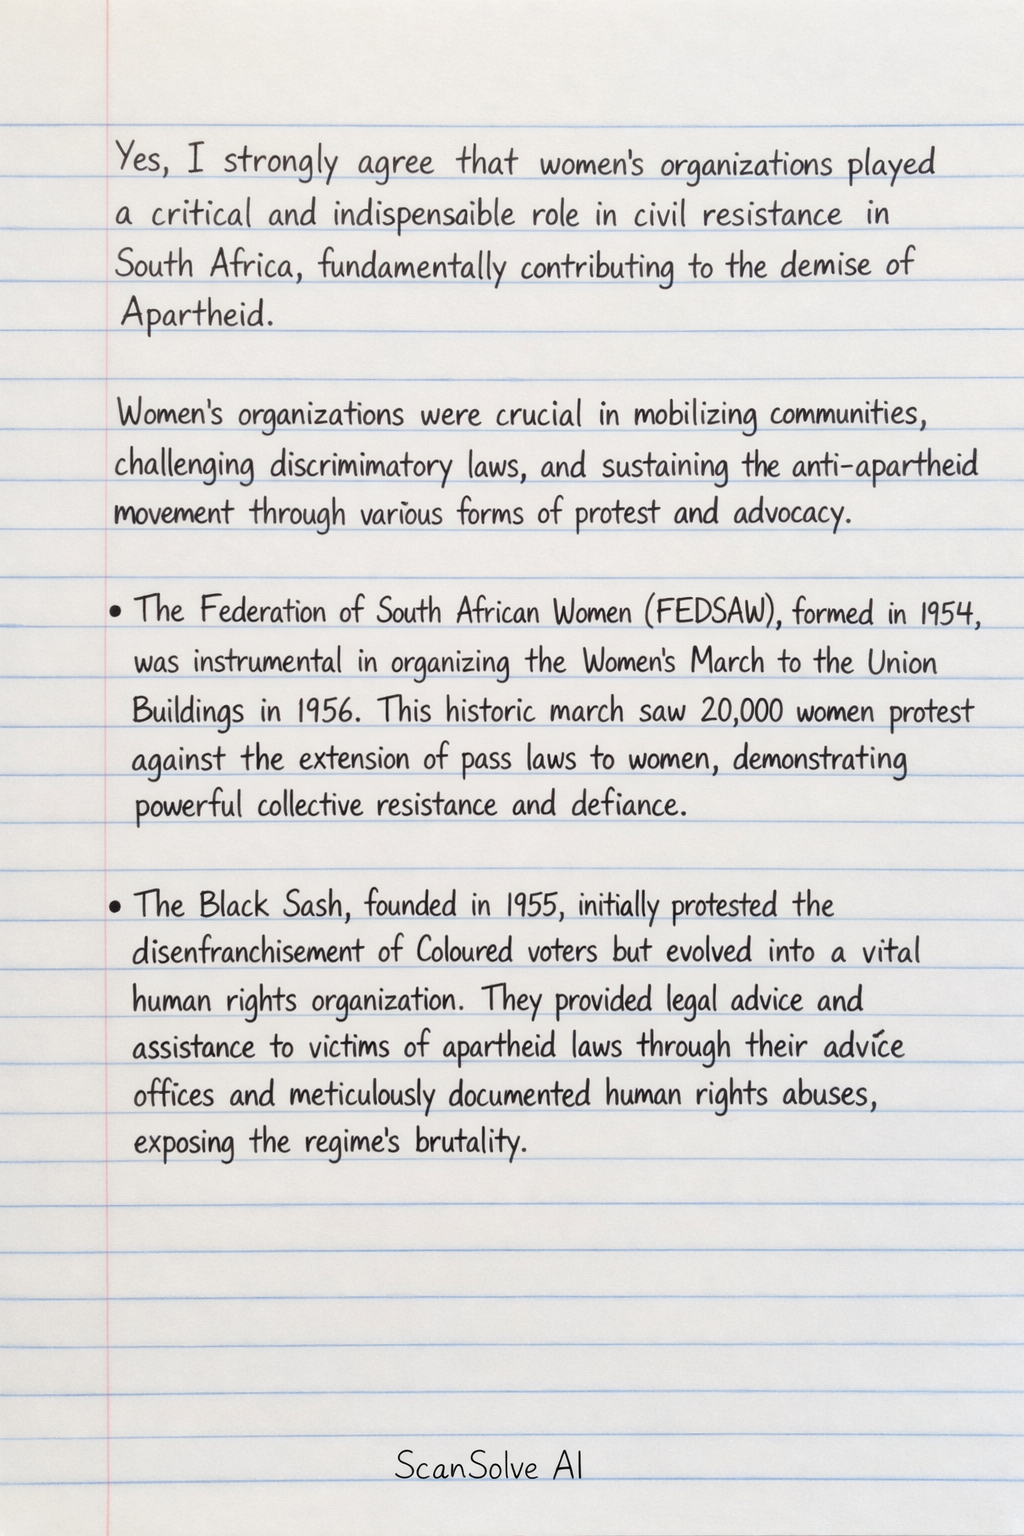 Yes, I strongly agree that women's organizations played
a critical and indispensaible role in civil resistance in
South Africa, fundamentally contributing to the demise of
Apartheid.
Women's organizations were crucial in mobilizing communities,
challenging discrimimatory laws, and sustaining the anti-apartheid
movement through various forms of protest and advocacy.
• The Federation of South African Women (FEDSAW), formed in 1954,
was instrumental in organizing the Women's March to the Union
Buildings in 1956. This historic march saw 20,000 women protest
against the extension of pass laws to women, demonstrating
powerful collective resistance and defiance.
• The Black Sash, founded in 1955, initially protested the
disenfranchisement of Coloured voters but evolved into a vital
human rights organization. They provided legal advice and
assistance to victims of apartheid laws through their advice
offices and meticulously documented human rights abuses,
exposing the regime's brutality.
ScanSolve AI